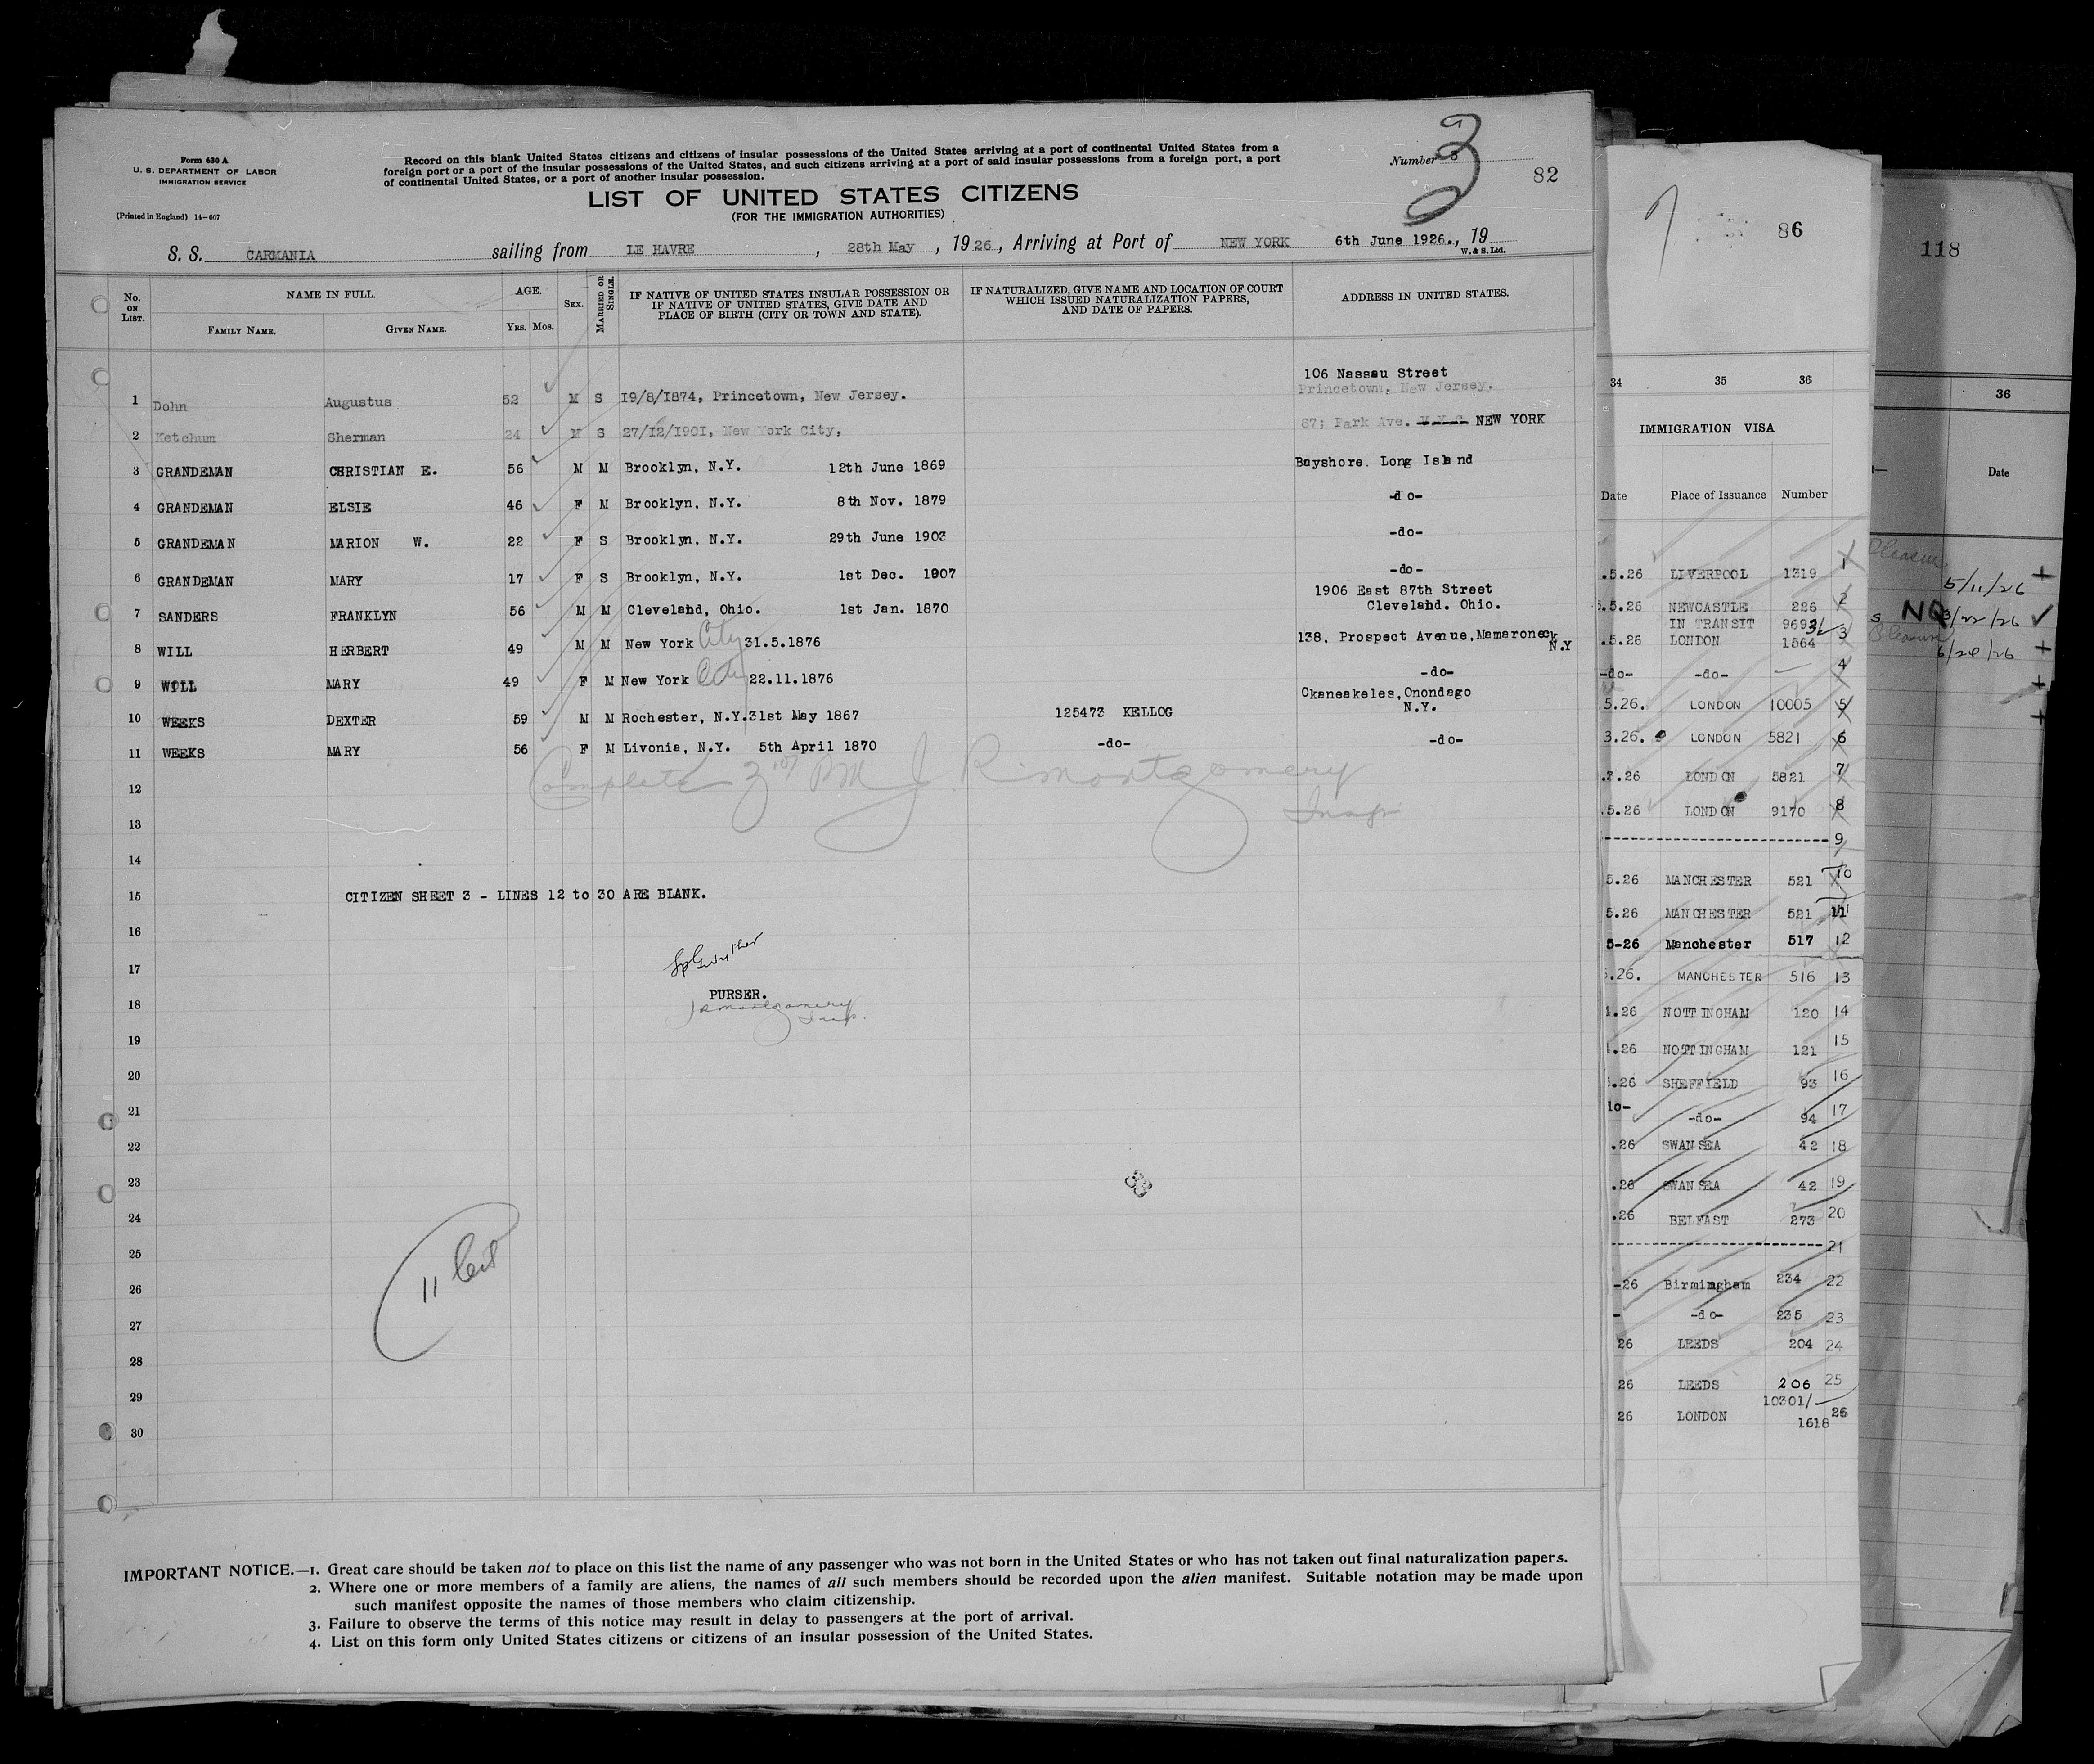 Form 630 A
U. S. DEPARTMENT OF LABOR
IMMIGRATION SERVICE
(Printed in England) 14-607
Record on this blank United States citizens and citizens of insular possessions of the United States arriving at a port of continental United States from a
foreign port or a port of the insular possessions of the United States, and such citizens arriving at a port of said insular possessions from a foreign port, a port
of continental United States, or a port of another insular possession.
Number 3
3
82
LIST OF UNITED STATES CITIZENS
(FOR THE IMMIGRATION AUTHORITIES)
S. S. CARMANIA sailing from LE HAVRE, 28th May, 1926, Arriving at Port of NEW YORK 6th June 1926., 19
W. & S. Ltd.
No. ON LIST. NAME IN FULL. AGE. SEX. MARRIED OR SINGLE. IF NATIVE OF UNITED STATES INSULAR POSSESSION OR IF NATIVE OF UNITED STATES, GIVE DATE AND PLACE OF BIRTH (CITY OR TOWN AND STATE). IF NATURALIZED, GIVE NAME AND LOCATION OF COURT WHICH ISSUED NATURALIZATION PAPERS, AND DATE OF PAPERS. ADDRESS IN UNITED STATES.
FAMILY NAME. GIVEN NAME. YRS. MOS.
106 Nassau Street
1 Dohn Augustus 52 M S 19/8/1874, Princetown, New Jersey. Princetown, New Jersey.
2 Ketchum Sherman 24 M S 27/12/1901, New York City, 87; Park Ave. NEW YORK
3 GRANDEMAN CHRISTIAN E. 56 M M Brooklyn, N.Y. 12th June 1869 Bayshore. Long Island
4 GRANDEMAN ELSIE 46 F M Brooklyn, N.Y. 8th Nov. 1879 -do-
5 GRANDEMAN MARION W. 22 F S Brooklyn, N.Y. 29th June 1903 -do-
6 GRANDEMAN MARY 17 F S Brooklyn, N.Y. 1st Dec. 1907 -do-
1906 East 87th Street
7 SANDERS FRANKLYN 56 M M Cleveland, Ohio. 1st Jan. 1870 Cleveland. Ohio.
8 WILL HERBERT 49 M M New York City 31.5.1876 138, Prospect Avenue, Mamaroneck N.Y
9 WILL MARY 49 F M New York City 22.11.1876 -do-
Ckaneakeles, Onondago
10 WEEKS DEXTER 59 M M Rochester, N.Y. 31st May 1867 125473 KELLOG N.Y.
11 WEEKS MARY 56 F M Livonia, N.Y. 5th April 1870 -do- -do-
Complete J. R. Montgomery
Insp
12
13
14
15 CITIZEN SHEET 3 - LINES 12 to 30 ARE BLANK.
16
17
PURSER.
18
J R Montgomery
Insp.
19
20
21
22
23
33
24
25
11 Cit
26
27
28
29
30
IMPORTANT NOTICE.—1. Great care should be taken not to place on this list the name of any passenger who was not born in the United States or who has not taken out final naturalization papers.
2. Where one or more members of a family are aliens, the names of all such members should be recorded upon the alien manifest. Suitable notation may be made upon
such manifest opposite the names of those members who claim citizenship.
3. Failure to observe the terms of this notice may result in delay to passengers at the port of arrival.
4. List on this form only United States citizens or citizens of an insular possession of the United States.
86
34 35 36
IMMIGRATION VISA
Date Place of Issuance Number
.5.26 LIVERPOOL 1319 1
.5.26 NEWCASTLE 226 2
IN TRANSIT 969
.5.26 LONDON 1564 3
-do- -do- 4
5.26. LONDON 10005 5
3.26. LONDON 5821 6
.3.26 LONDON 5821 7
.5.26 LONDON 9170 8
9
5.26 MANCHESTER 521 10
5.26 MANCHESTER 521 11
5-26 Manchester 517 12
.26. MANCHESTER 516 13
.26 NOTTINGHAM 120 14
.26 NOTTINGHAM 121 15
.26 SHEFFIELD 93 16
do- -do- 94 17
.26 SWANSEA 42 18
.26 SWANSEA 42 19
.26 BELFAST 273 20
21
-26 Birmingham 234 22
- -do- 235 23
26 LEEDS 204 24
26 LEEDS 206 25
10301/
26 LONDON 1618 26
118
36
Date
Pleasure
5/11/26 +
s NQ 3/22/26
Pleasure
6/28/26 +
+
+